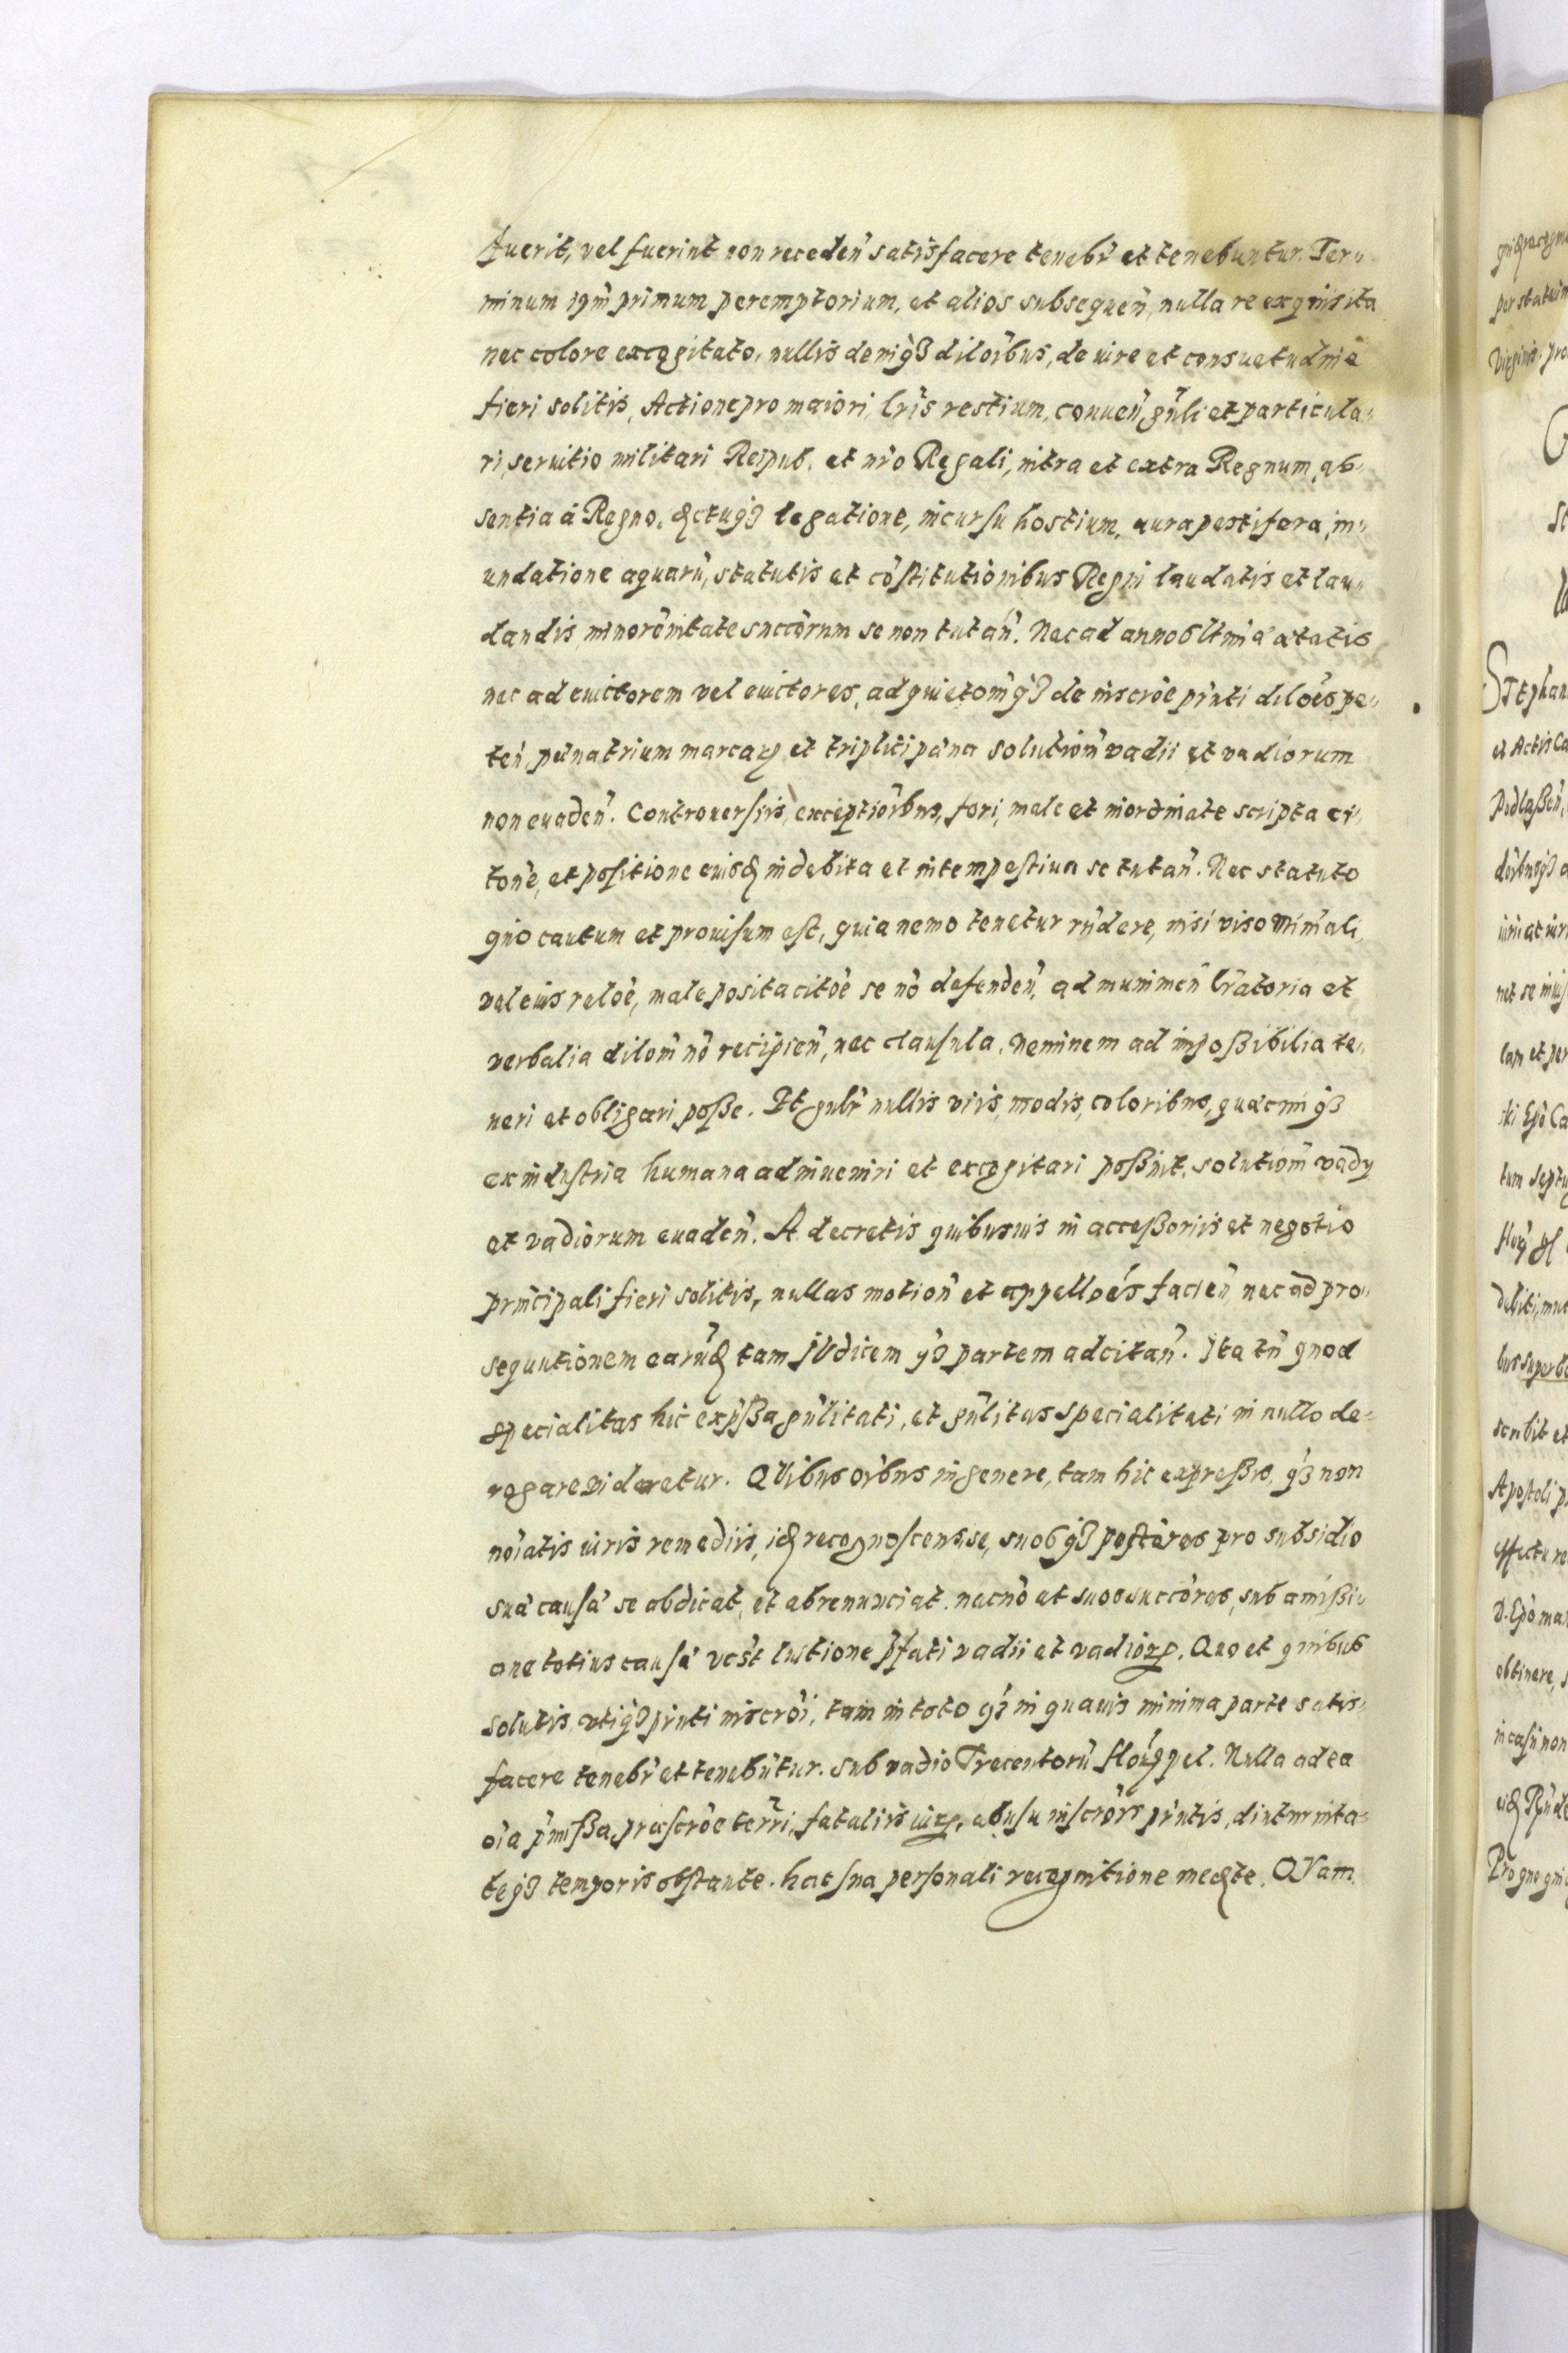 fuerit, vel fuerint non receden̄ satisfacere tenebr̄ et tenebuntur. Ter„
minum iꝑm primum peremptorium, et alios subsequen̄, nulla re exquisita
nec colore excogitato, nullis deniqȝ diloībus, de iure et consuetudine
fieri solitis, Actione pro maiori, lr̄is restium, conuen̄ gn̄li et particula„
ri, seruitio militari Reipub. et nr̄o Regali, intra et extra Regnum, ab„
sentia à Regno, legatione, incursu hostium, aura pestifera, in„
undatione aquarū, statutis et cōstitutionibus Regni laudatis et lau„
dandis minorēnitate succōrum se non tutan̄. Nec ad annos ltīmæ ætatis
nec ad euictorem vel euictores, ad quietōmqȝ de inscrōe pn̄ti dilōes pe„
ten̄, pœna trium marcaꝝ et triplici pœna solution̄ vadii et vadiorum
non euaden̄. Controuersiis, exceptiōibus, fori, male et inordinate scripta ci„
tōne, et positione eiusꝗ indebita et intempestiua se tutan̄. Nec statuto
quo cautum et prouisum est, quia nemo tenetur rn̄dere, nisi viso
vel eius relōe, male posita citōe se nō defenden̄, ad munimen̄ lr̄atoria et
verbalia dilōm nō recipien̄, nec clausula. Neminem ad impossibilia te„
neri et obligari posse. Et gn̄lr̄ nullis viis, modis, coloribus, quæcunqȝ
ex industria humana adinueniri et excogitari possint, solutiōm vady
et vadiorum euaden̄. A decretis quibusuis in accessoriis et negotio
principali fieri solitis, nullas motion̄ et appellōes facien̄ nec ad pro„
sequutionem earūꝗ tam judicem qȝ partem adcitan̄. Ita tn̄ quod
specialitas hic exp̄ssa gn̄litati, et gn̄litas specialitati in nullo de„
rogare videretur. QVibus oībus in genere, tam hic expressis, qȝ non
nōiatis iuris remediis, idꝗ recognoscens se, suosqȝ postēros pro subsidio
suæ causæ se abdicat, et abrenunciat. necnō et suos succōres, sub amissi„
one totius causæ vest luitione p̄fati vadii et vadioꝝ. Quo et quibus
solutis, vtiqȝ pn̄ti inscrōi, tam in toto qȝ in quauis minima parte satis„
facere tenebr̄ et tenebūtur. sub vadio Trecentorū flōꝝ pel. Nulla ad ea
oīa p̄missa, præscrōe terrī, fataliis iurꝝ, abusu inscrōis pn̄tis, diuturnita„
teqȝ temporis obstante. hac sua personali recognitione medte. QVam